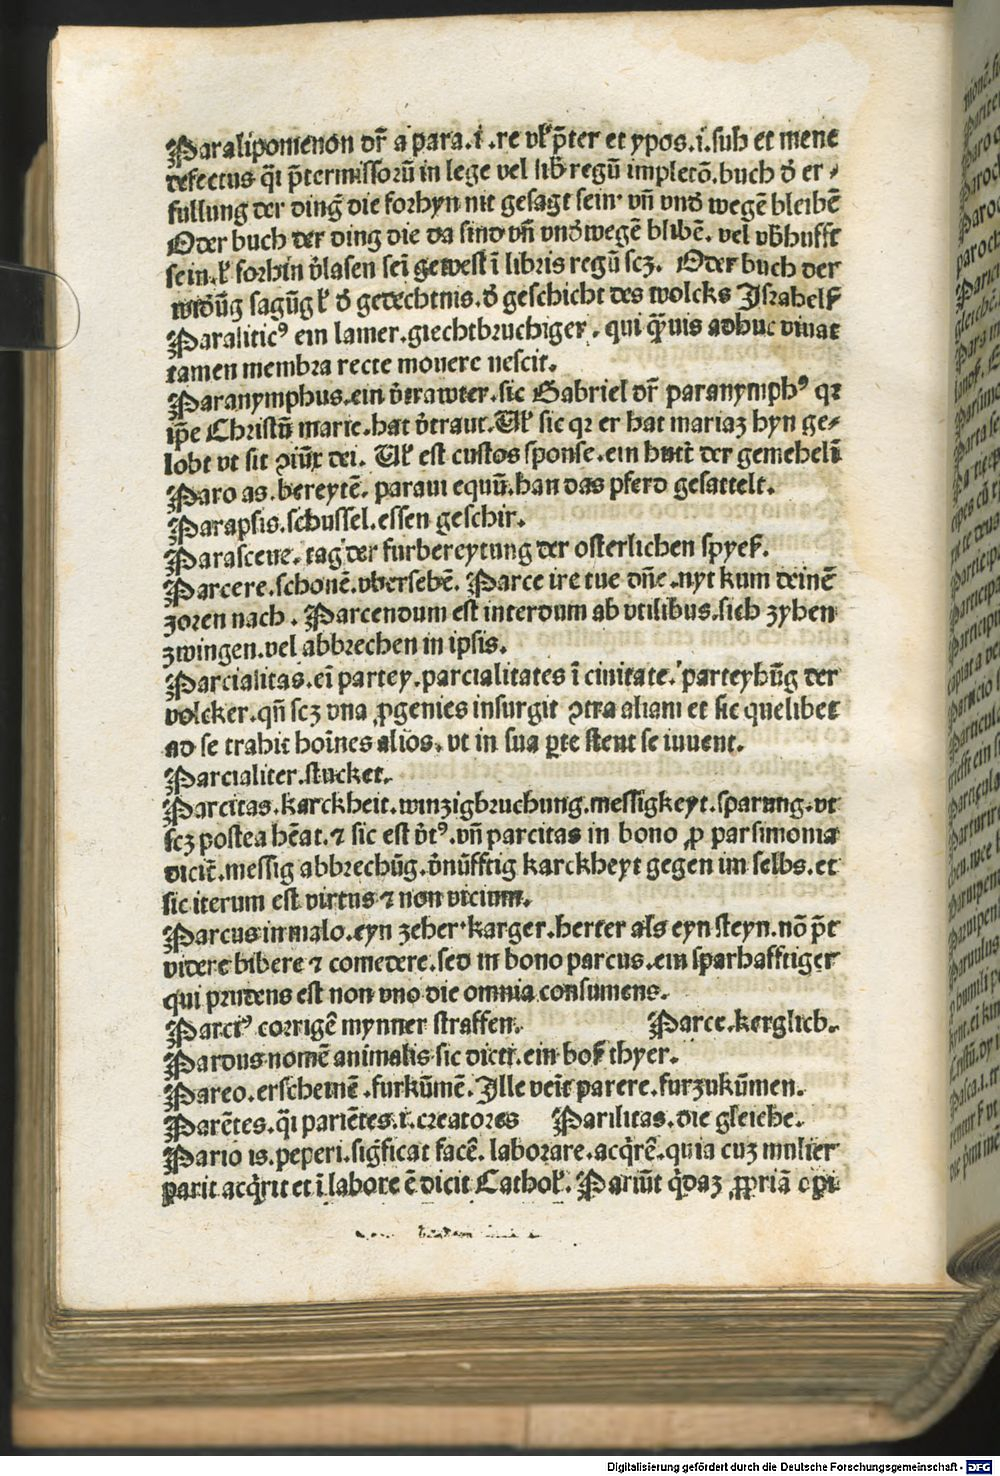 Paralipomenon dr̄ a para.i.re vl' p̄ter et ypos.i.sub et mene
defectus q̄i p̄termissorū in lege vel lib̄ regū impletō.buch d̄ er⸗
fullung der ding die forhyn nit gesagt sein vn̄ vnd̓ wegē bleibē
Oder buch der ding die da sind vn̄ vnd̓wegē blibē. vel vb̓hufft
sein.l' forhin v̓lasen sei̅ gewest i̅ libris regū scz. Oder buch der
wid̓ūg sagūg l' d̓ gedechtnis.d̓ geschicht des wolcks Israhel
Paralitic⁹ ein lamer.giechtbruchiger. qui q̄uis adhuc viuat
tamen membra recte mouere nescit.
Paranymphus.ein v̓trawter.sic Gabriel dr̄ paranymph⁹ qꝛ
ip̄e Christū marie.hat v̓traut.Ul' sic qꝛ er hat mariaz hyn ge⸗
lobt vt sit ꝯiūx dei. Ul' est custos sponse.ein hutt̓ der gemeheli̅
Paro as.bereytē. paraui equū.han das pferd gesattelt.
Parapsis.schussel.essen geschir.
Parasceue.tag der furbereytung der osterlichen spyeß.
Parcere.schonē.vbersehē. Parce ire tue dn̄e.nyt kum deinē
zoren nach. Parcendum est interdum ab vtilibus.sich zyhen
zwingen.vel abbrechen in ipsis.
Parcialitas.ei̅ partey.parcialitates i̅ ciuitate.parteyhūg der
volcker.qn̄ scz vna ꝓgenies insurgit ꝯtra aliam et sic quelibet
ad se trahit hoi̅nes alios.vt in sua ꝑte stent se iuuent.
Parcialiter.stucket.
Parcitas.karckheit.winzigbruchung.messigkeyt.sparung.vt
scz postea hēat.⁊ sic est v̓t⁹.vn̄ parcitas in bono ꝓ parsimonia
dicit̓.messig abbrechūg.v̓nūfftig karckheyt gegen im selbs.et
sic iterum est virtus ⁊ non vicium.
Parcus in malo.eyn zeher karger.herter als eyn steyn.nō p̄t
videre bibere ⁊ comedere.sed in bono parcus.ein sparhafftiger
qui prudens est non vno die omnia consumens.
Parci⁹ corrigē mynner straffen. Parce.kerglich.
Pardus nomē animalis sic dictī.ein boß thyer.
Pareo.erscheinē.furkūmē.Ille veīt parere.furzukūmen.
Parētes.q̄i pariētes.i.creatores Parilitas.die gleiche.
Pario is.peperi.sigīficat facē.laborare.acq̄rē.quia cuz mulier
parit acq̄rit et i̅ labore ē dicit Cathol'. Pariūt q̄daz ꝓpriā opi